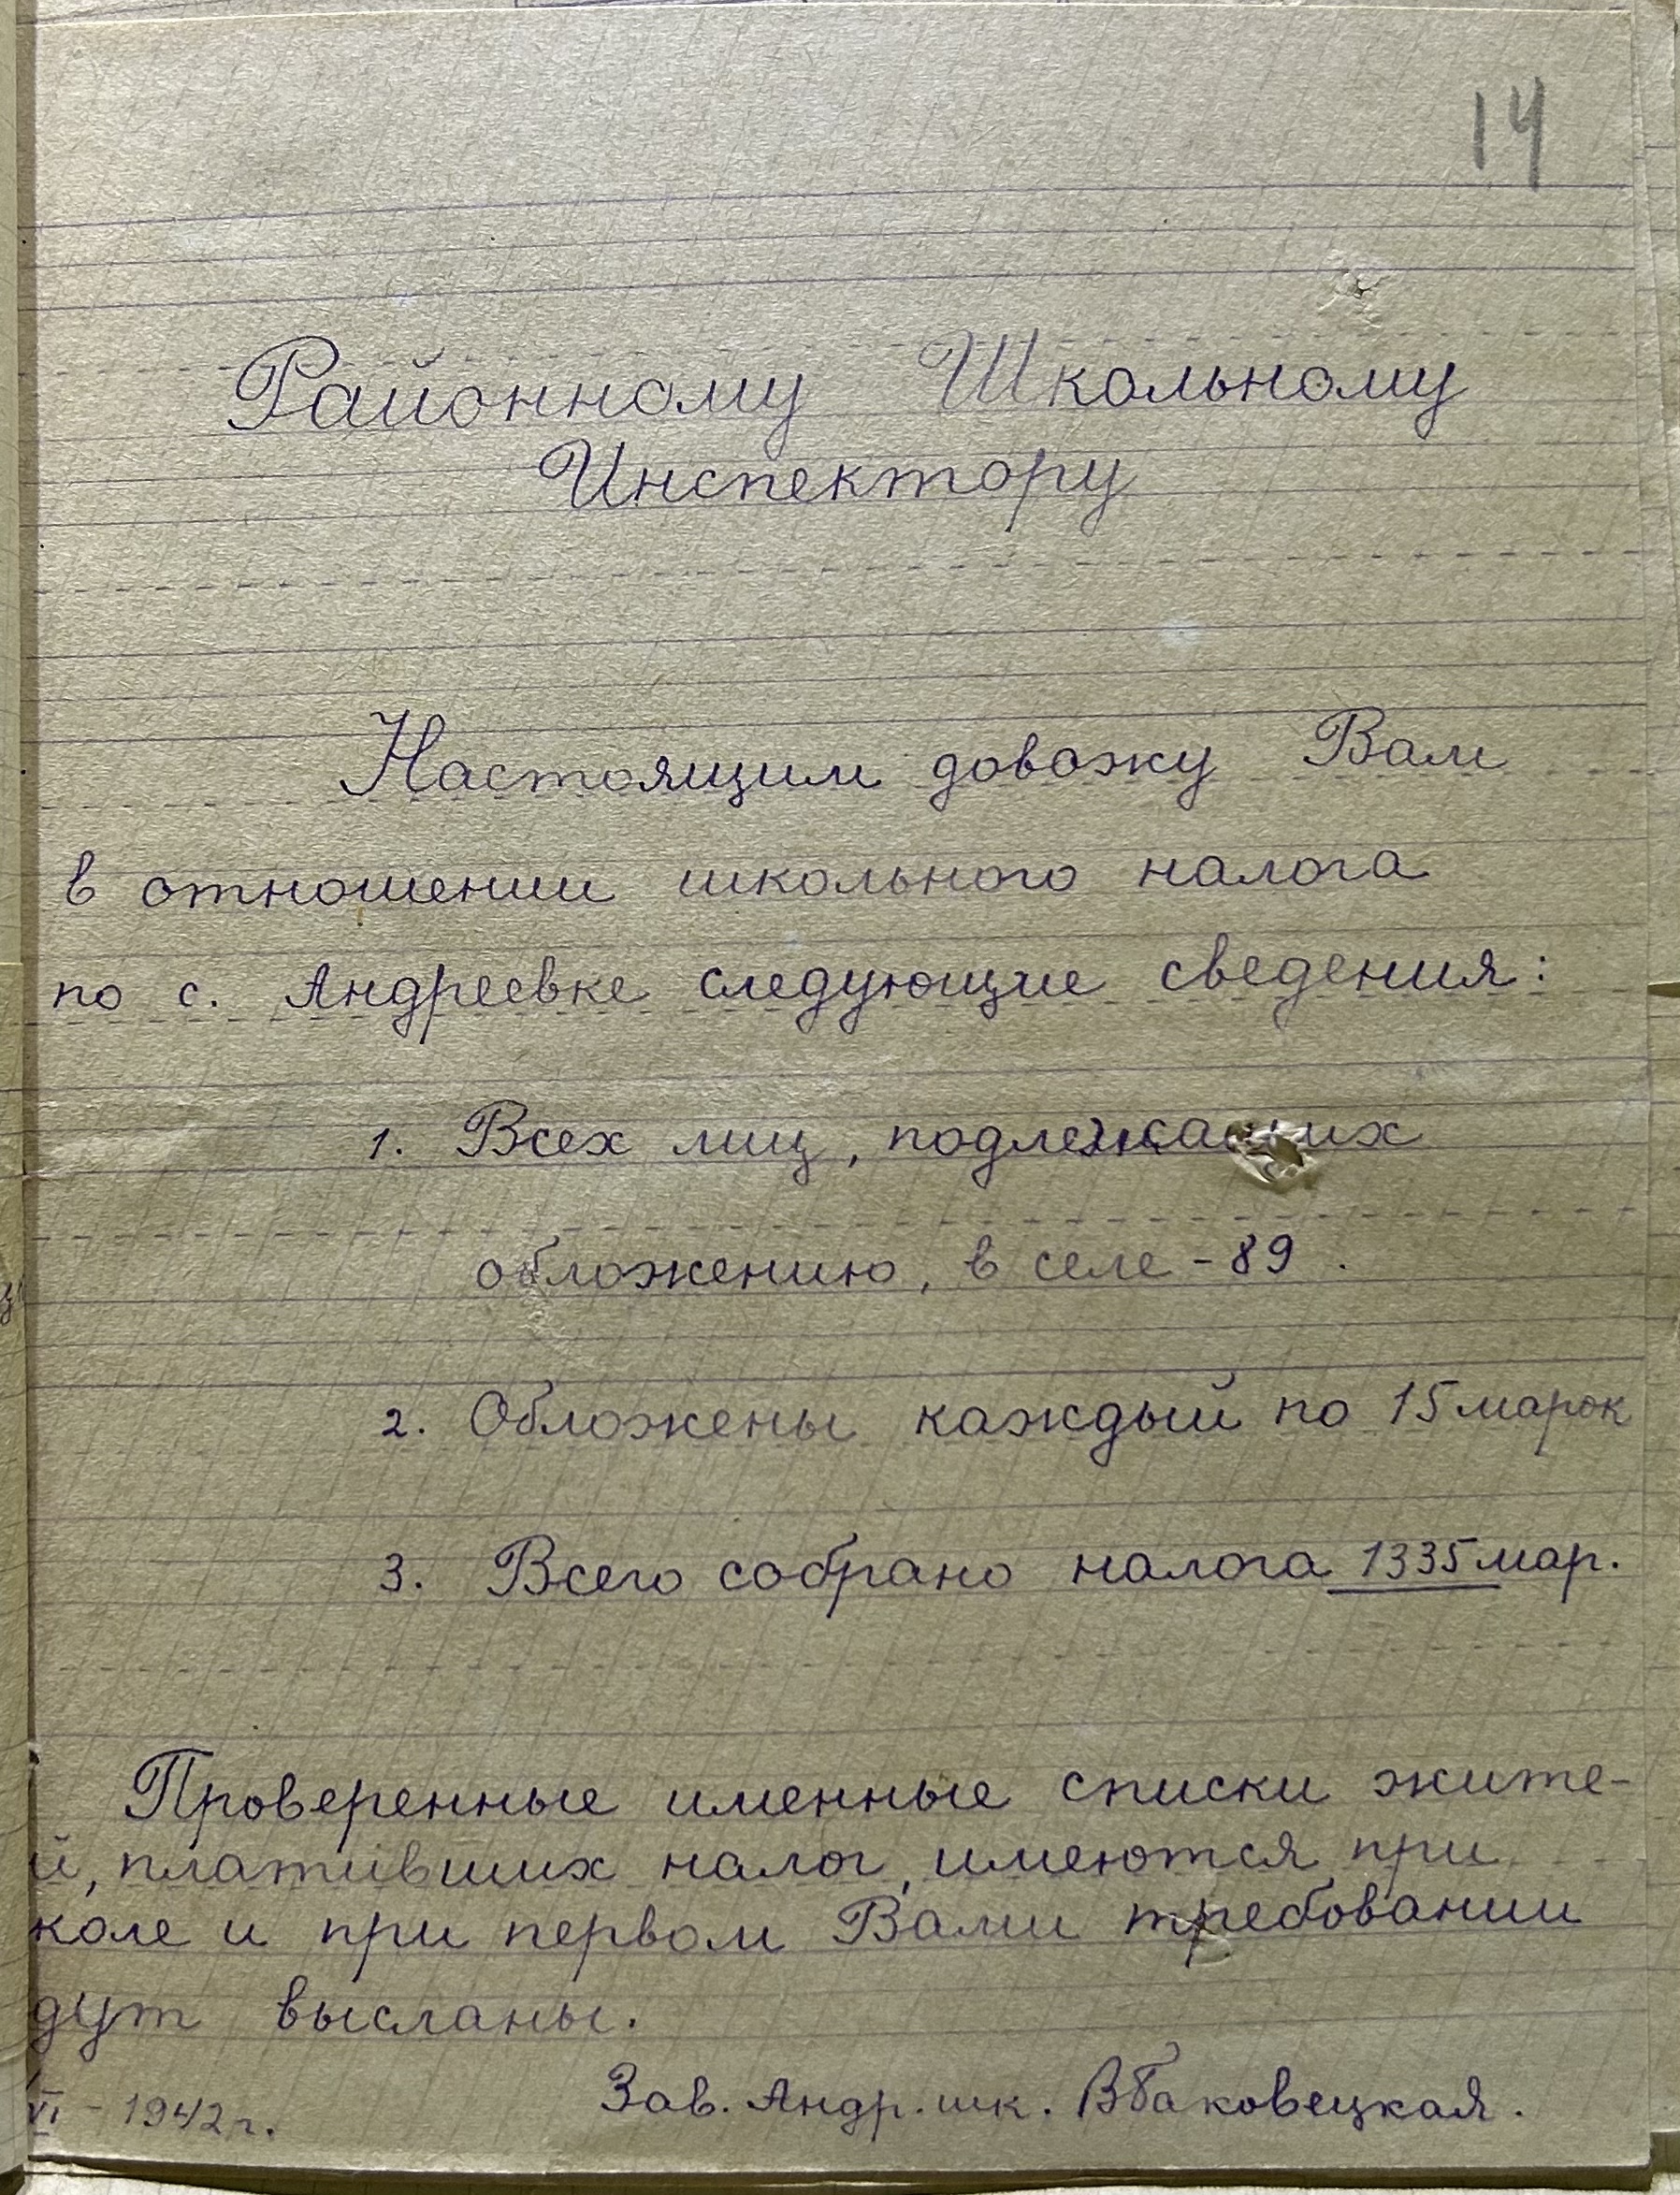 14
Районному Школьному
Инспектору
Настоящим довожу Вам
в отношении школьного налога
по с. Андреевке следующие сведения:
1. Всех лиц, подлежащих
обложению, в селе - 89.
2. Обложены каждый по 15 марок
3. Всего собрано налога 1335 мар.
Проверенные именные списки жите-
й, плативших налог, имеются при
коле и при первом Вами требовании
дут высланы.
VI - 1942 г. Зав. Андр. шк. ВБаковецкая.